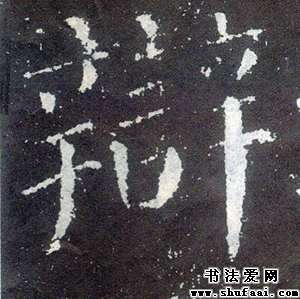 辯
书法爱网
www.shufaai.com